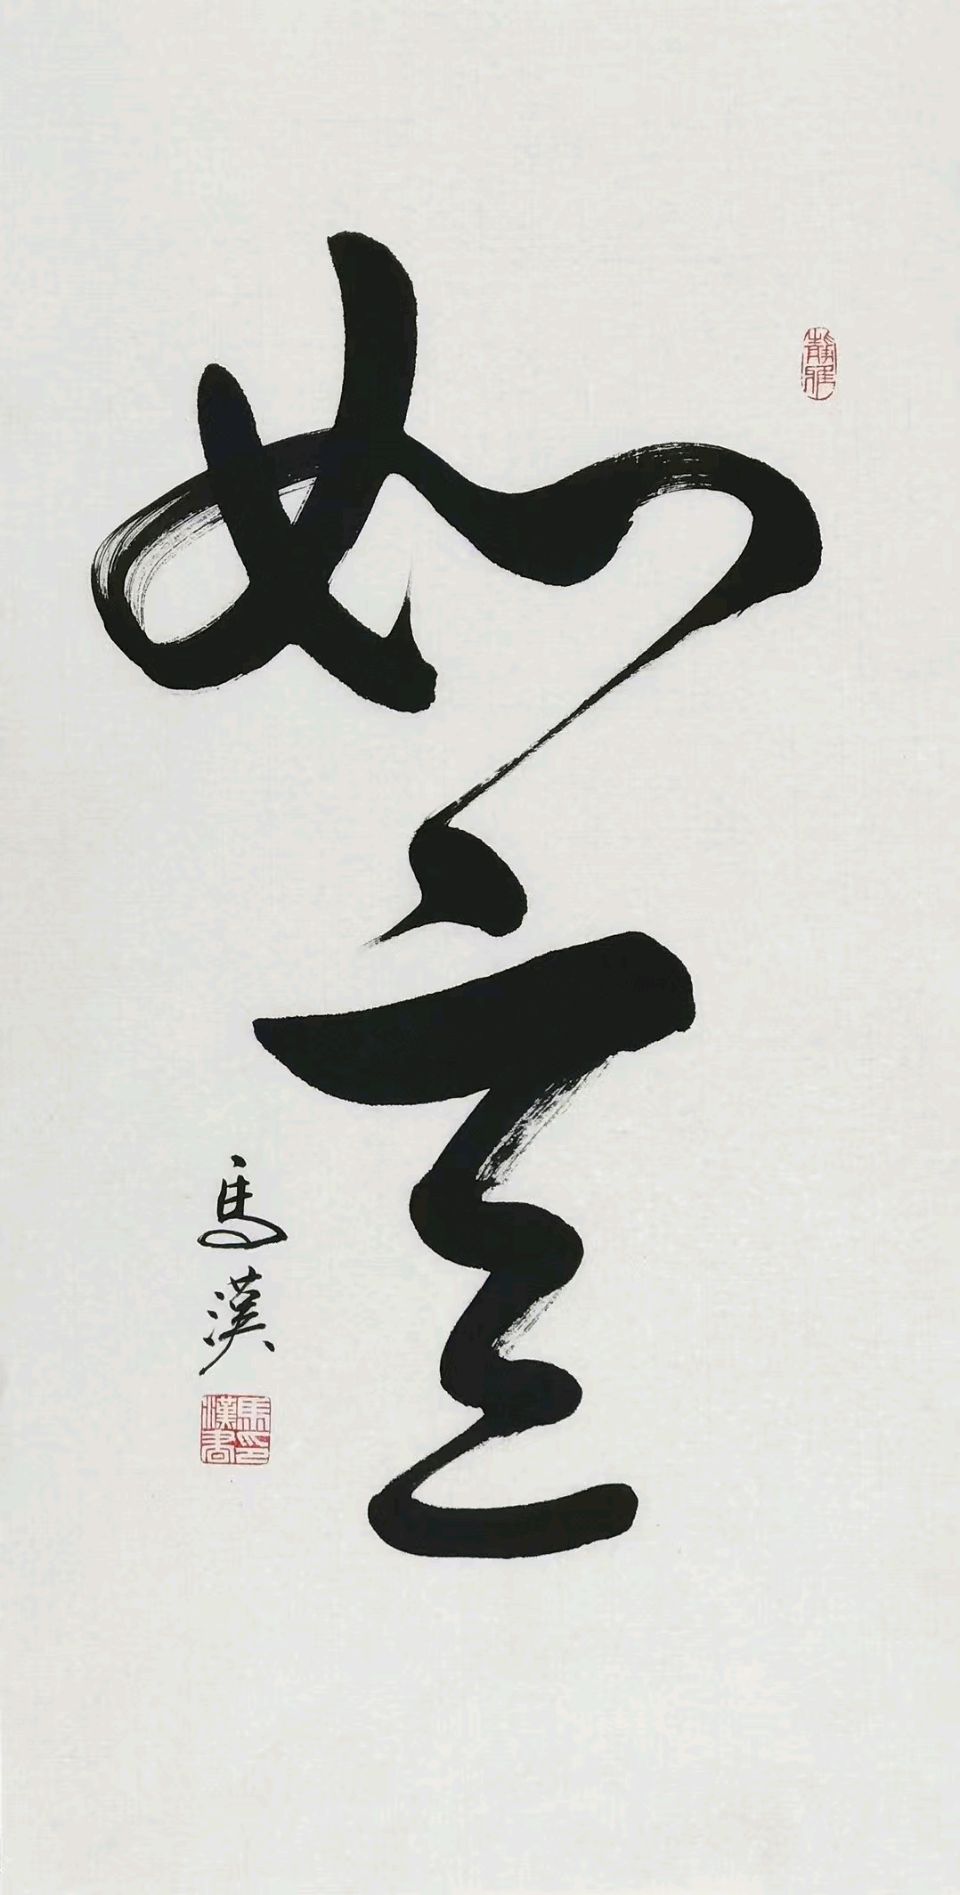 如意
靜雅
馬漢
馬印
漢書